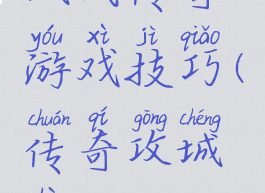 yóu xì jì qiǎo
游戏技巧(
chuán qí gōng chéng
传奇攻城